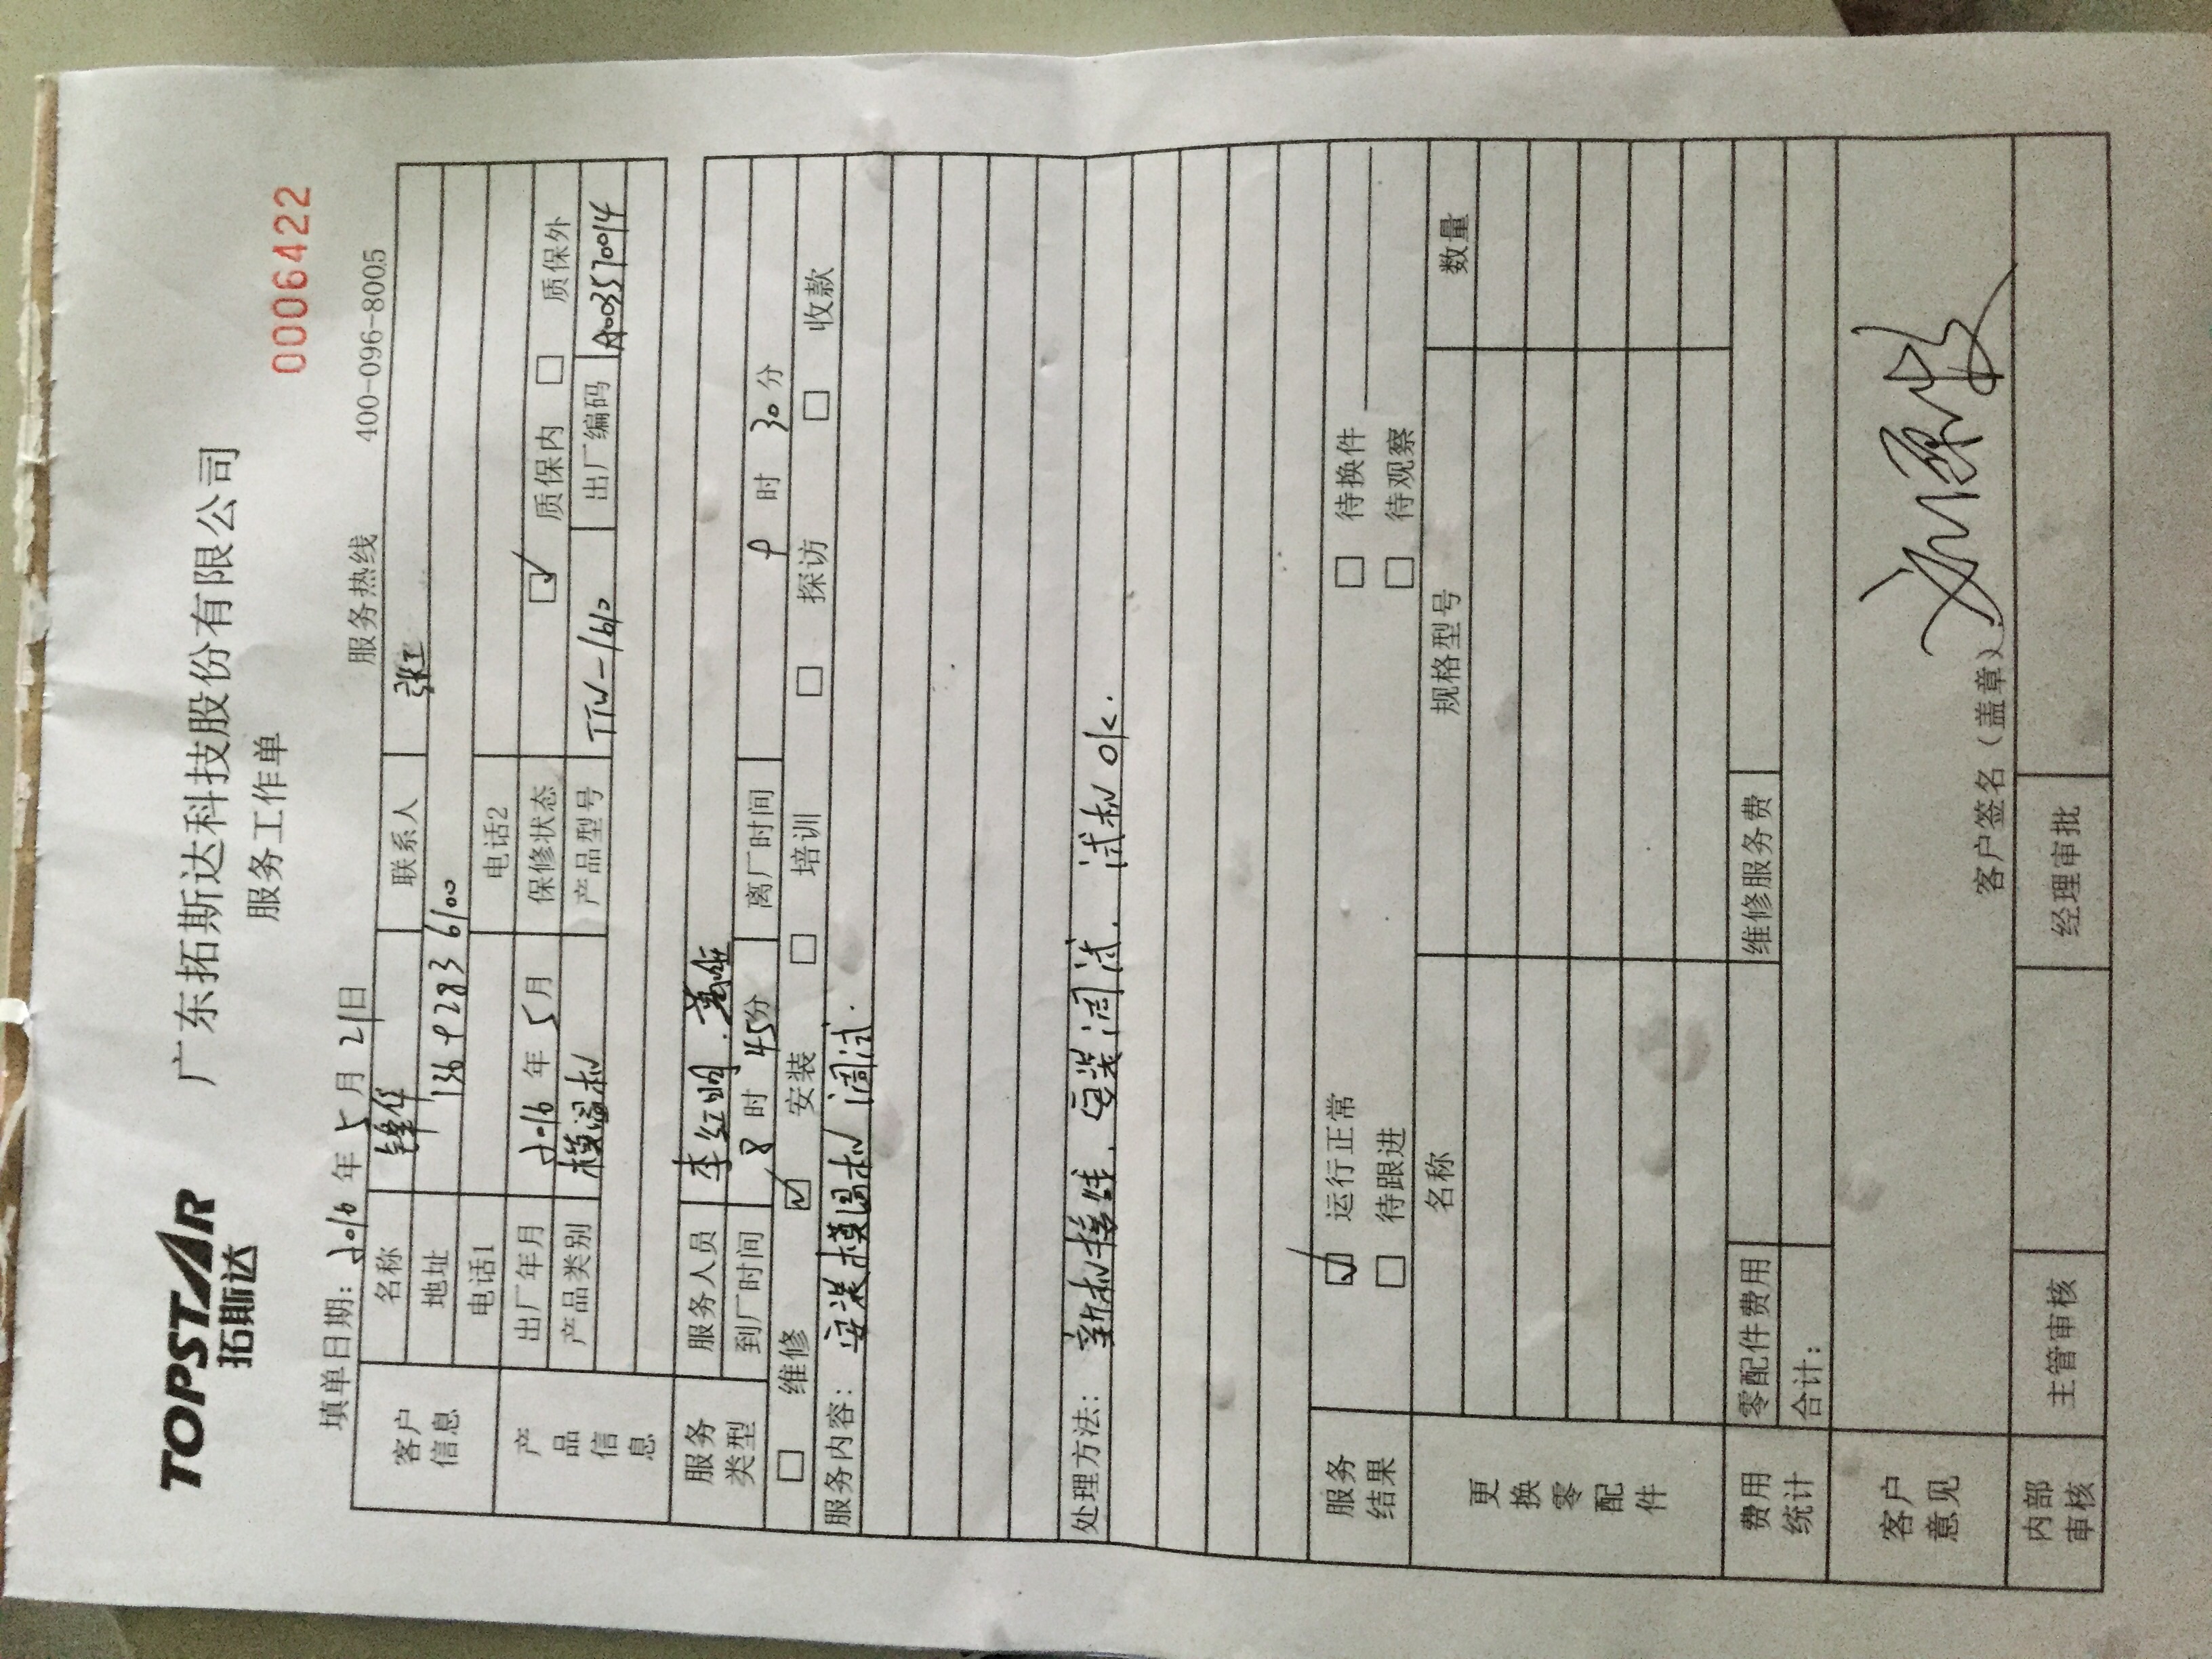 TOPSTAR
拓斯达
广东拓斯达科技股份有限公司
服务工作单
0006422
填单日期: 2016 年 5 月 21日 服务热线 400-096-8005
客户信息 名称 锋仕 联系人 张工
地址 136 9283 6100
电话1 电话2
产品信息 出厂年月 2016 年 5 月 保修状态 ☑ 质保内 □ 质保外
产品类别 模温机 产品型号 TTW-1610 出厂编码 A003570014
服务类型 服务人员 李红明.
到厂时间 8 时 45分 离厂时间 9 时 30分
□ 维修 ☑ 安装 □ 培训 □ 探访 □ 收款
服务内容: 安装模温机 调试.
处理方法: 新机接线. 安装调试. 试机 ok.
服务结果 ☑ 运行正常 □ 待换件
□ 待跟进 □ 待观察
更换零配件 名称 规格型号 数量
费用统计 零配件费用 维修服务费
合计:
客户意见
客户签名（盖章）
内部审核 主管审核 经理审批